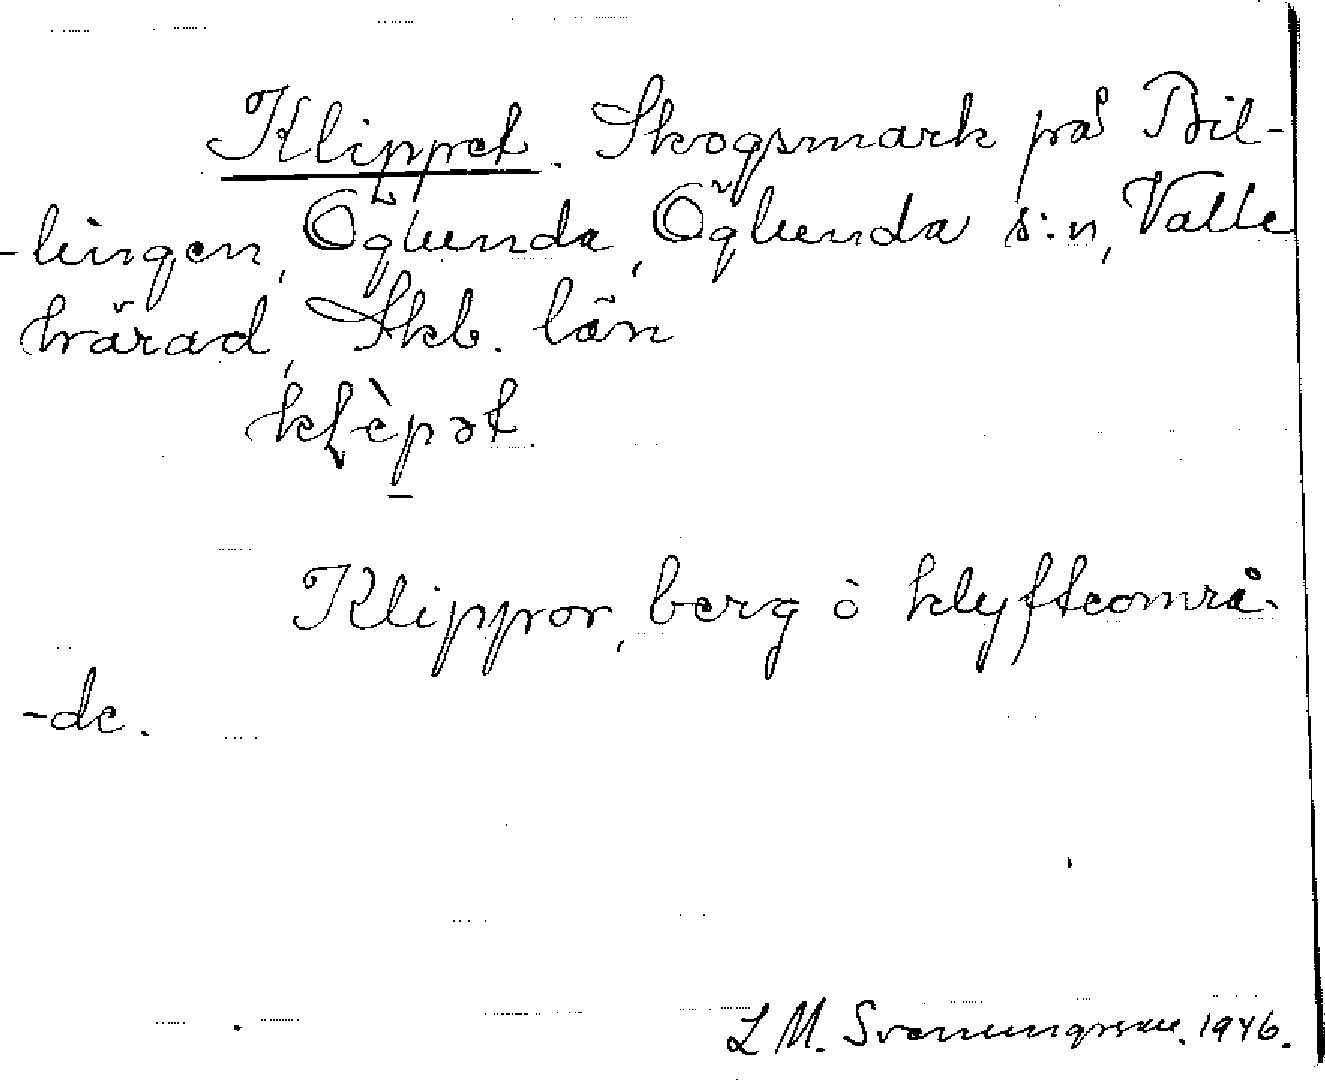 Klippet. Skogsmark på Bil-
-lingen, Öglunda, Öglunda s:n, Valle
härad, Skb. län
kļèpət
Klippor, berg o klyfteområ-
-de.
L M. Svenungsson. 1946.